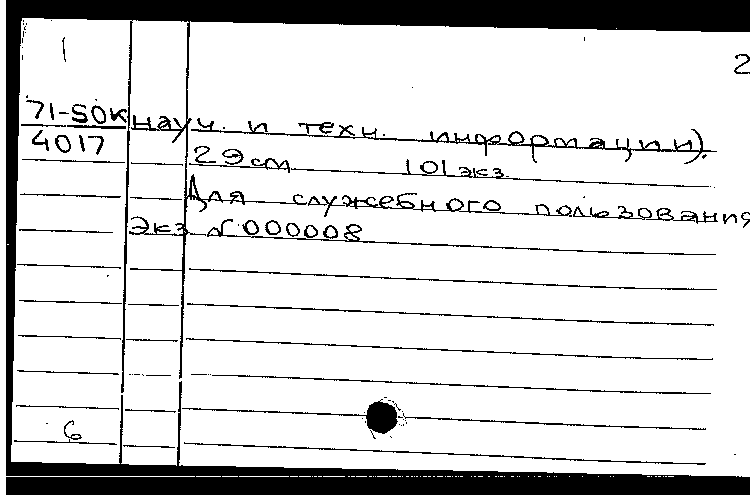 1
2
71-50К науч. и техн. информации).
4017
29 см 101 экз.
Для служебного пользования
Экз № 000008
6